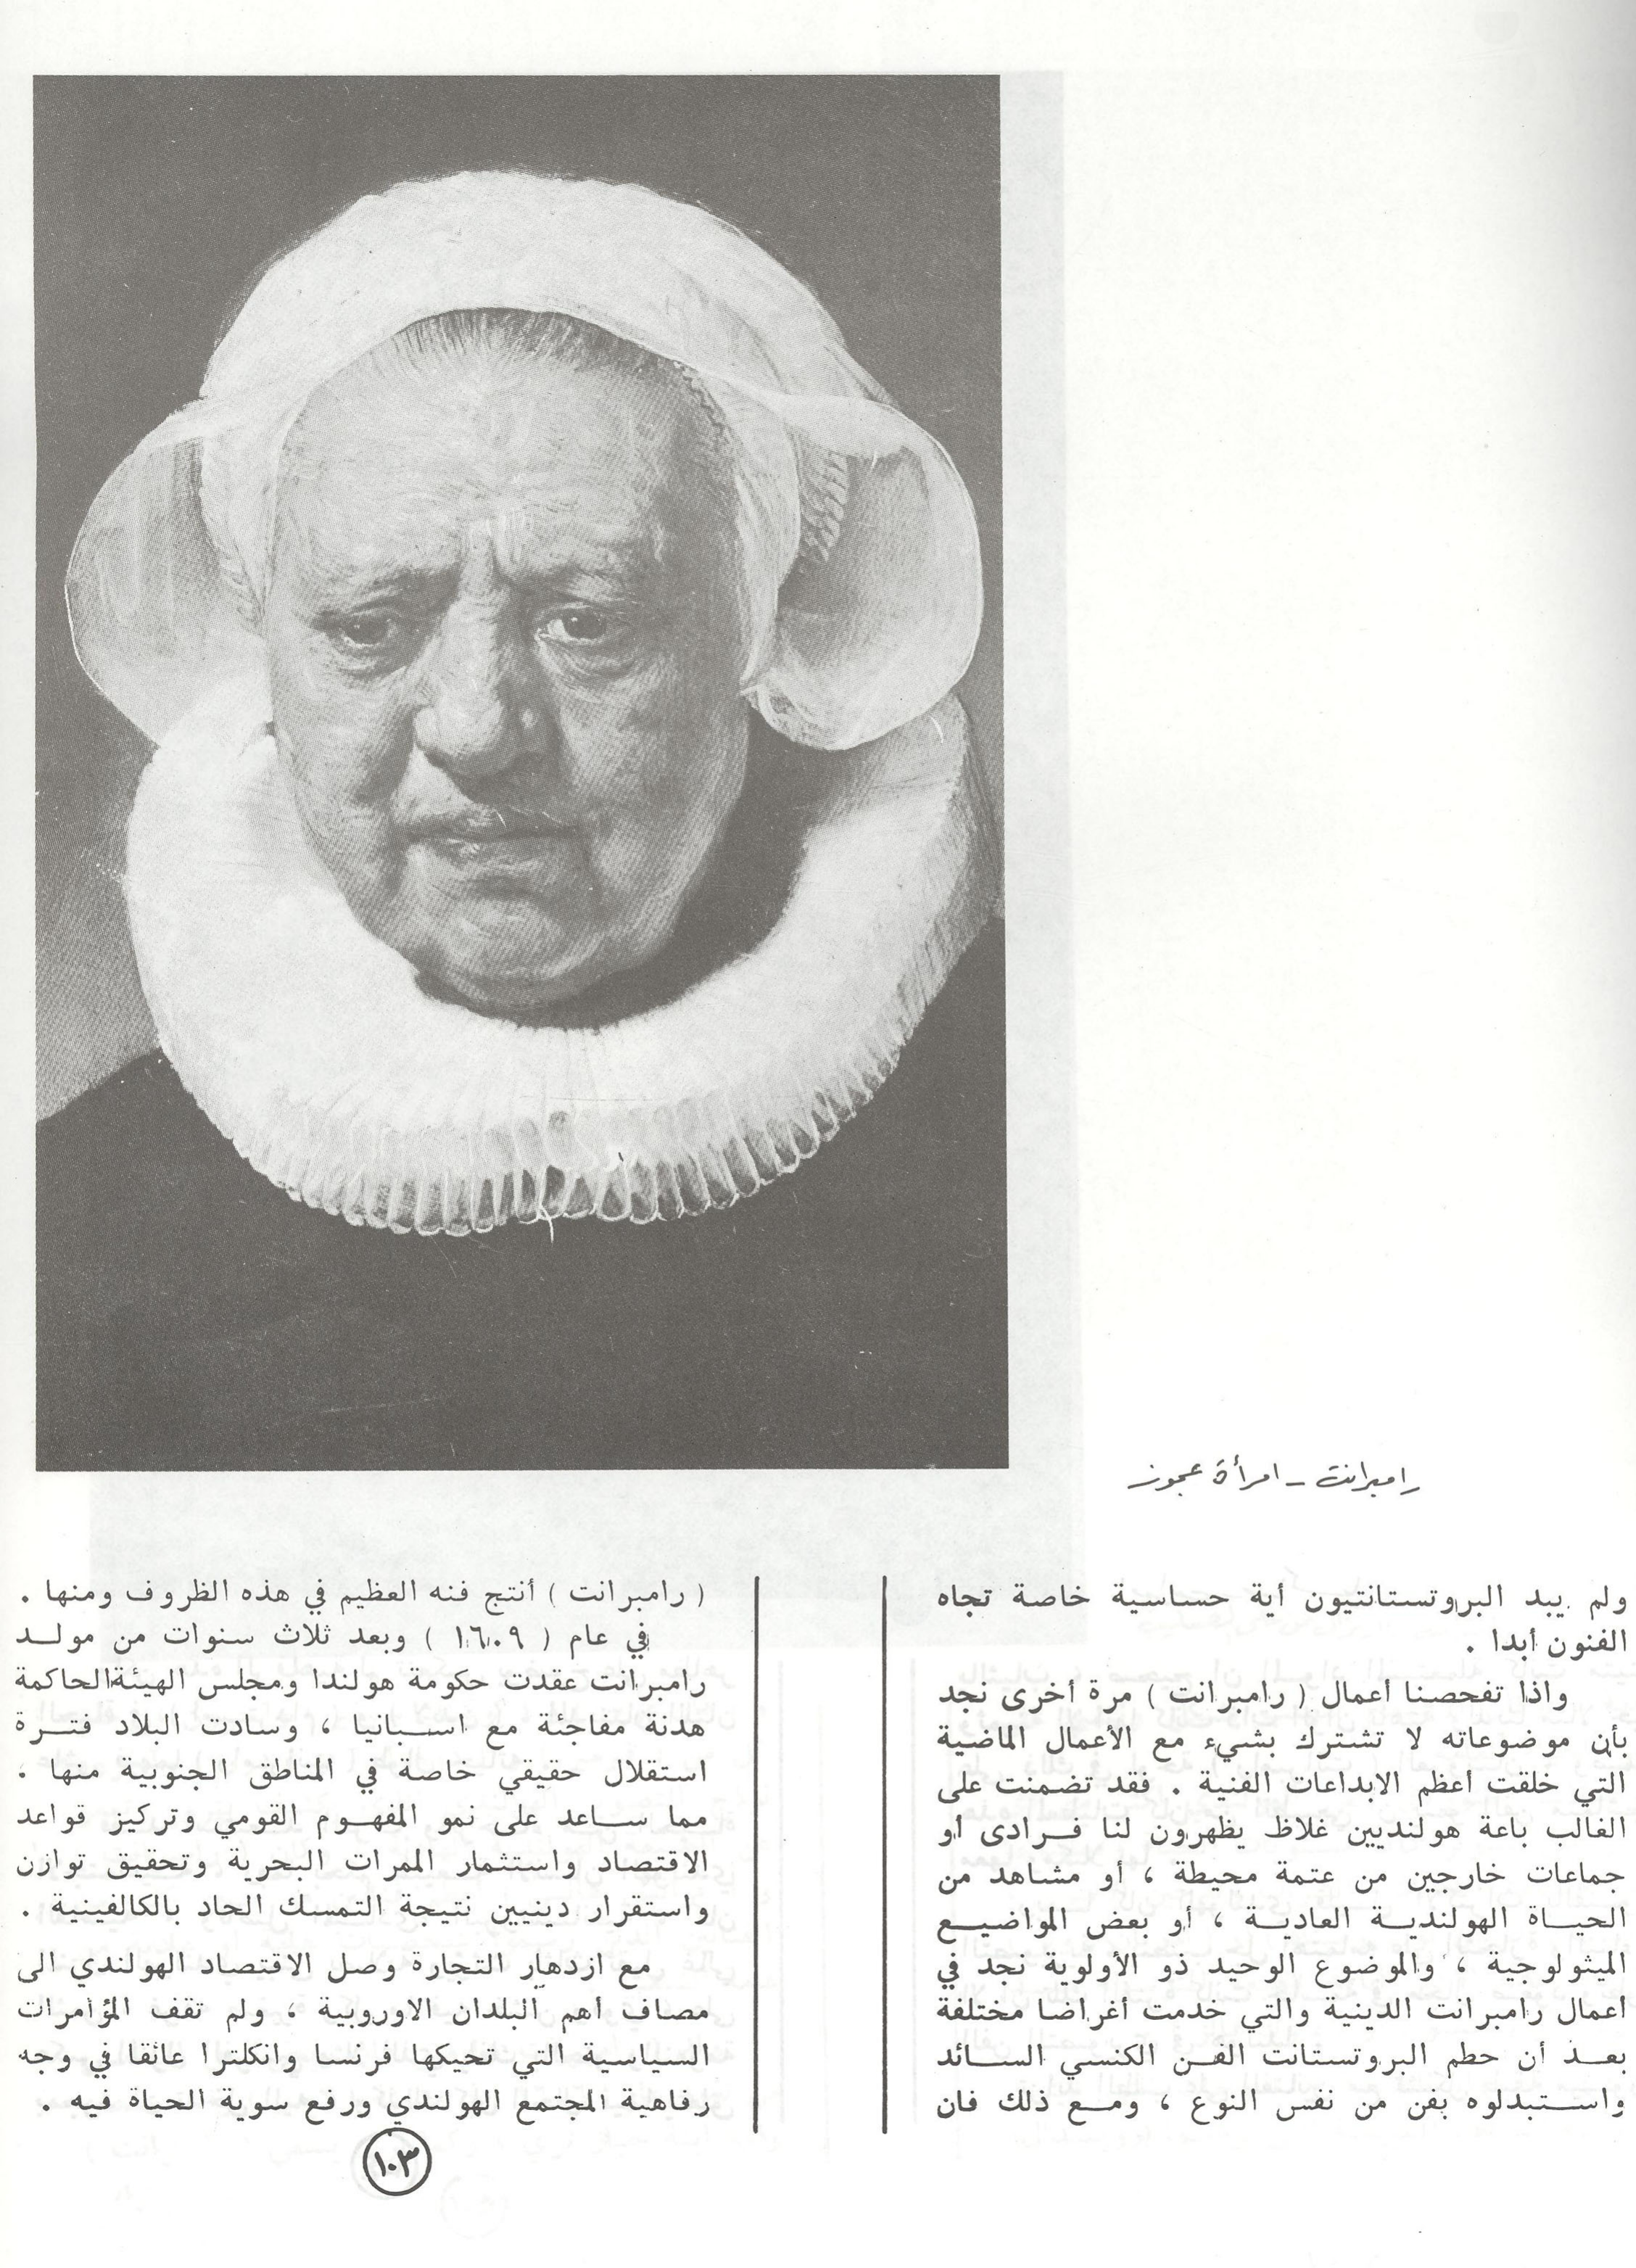 رامبرانت - امرأة عجوز
ولم يبد البروتستانتيون أية حساسية خاصة تجاه
الفنون أبدا .
واذا تفحصنا أعمال ( رامبرانت ) مرة أخرى نجد
بأن موضوعاته لا تشترك بشيء مع الأعمال الماضية
التي خلقت أعظم الابداعات الفنية . فقد تضمنت على
الغالب باعة هولنديين غلاظ يظهرون لنا فرادى أو
جماعات خارجين من عتمة محيطة ، أو مشاهد من
الحياة الهولندية العادية ، أو بعض المواضيع
الميثولوجية ، والموضوع الوحيد ذو الأولوية نجد في
أعمال رامبرانت الدينية والتي خدمت أغراضا مختلفة
بعد أن حطم البروتستانت الفن الكنسي السائد
واستبدلوه بفن من نفس النوع ، ومع ذلك فان
( رامبرانت ) أنتج فنه العظيم في هذه الظروف ومنها .
في عام ( ١٦٠٩ ) وبعد ثلاث سنوات من مولد
رامبرانت عقدت حكومة هولندا ومجلس الهيئة الحاكمة
هدنة مفاجئة مع اسبانيا ، وسادت البلاد فترة
استقلال حقيقي خاصة في المناطق الجنوبية منها .
مما ساعد على نمو المفهوم القومي وتركيز قواعد
الاقتصاد واستثمار الممرات البحرية وتحقيق توازن
واستقرار دينيين نتيجة التمسك الحاد بالكالفينية .
مع ازدهار التجارة وصل الاقتصاد الهولندي الى
مصاف أهم البلدان الاوروبية ، ولم تقف المؤامرات
السياسية التي تحيكها فرنسا وانكلترا عائقا في وجه
رفاهية المجتمع الهولندي ورفع سوية الحياة فيه .
١٠٣